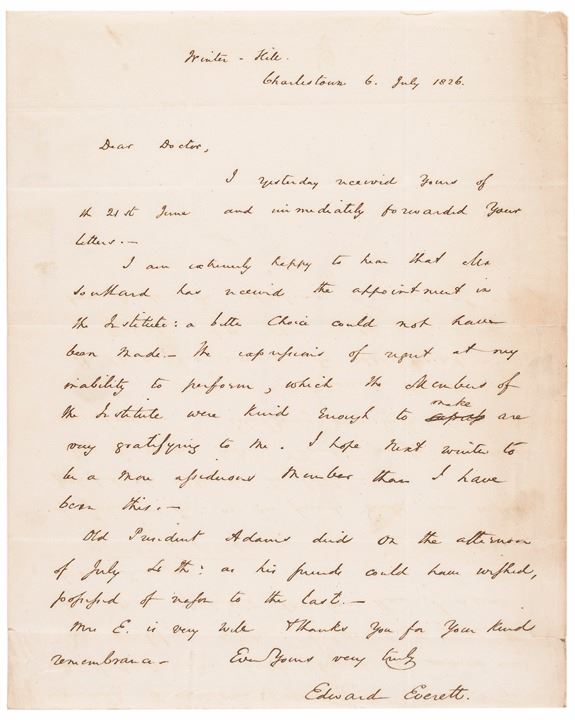 Winter-Hill.
Charlestown 6. July 1826.
Dear Doctor,
I yesterday received yours of
th 21st June and immediately forwarded your
letters.—
I am extremely happy to hear that Mr
Southard has received the appointment in
the Institute: a better choice could not have
been made.— The expressions of regret at my
inability to perform, which the Members of
the Institute were kind enough to make are
very gratifying to me. I hope next winter to
be a more assiduous member than I have
been this.—
Old President Adams died on the afternoon
of July 4th: as his friends could have wished,
possessed of reason to the last.—
Mrs E. is very well & thanks you for your kind
remembrance— Ever Yours very truly
Edward Everett.